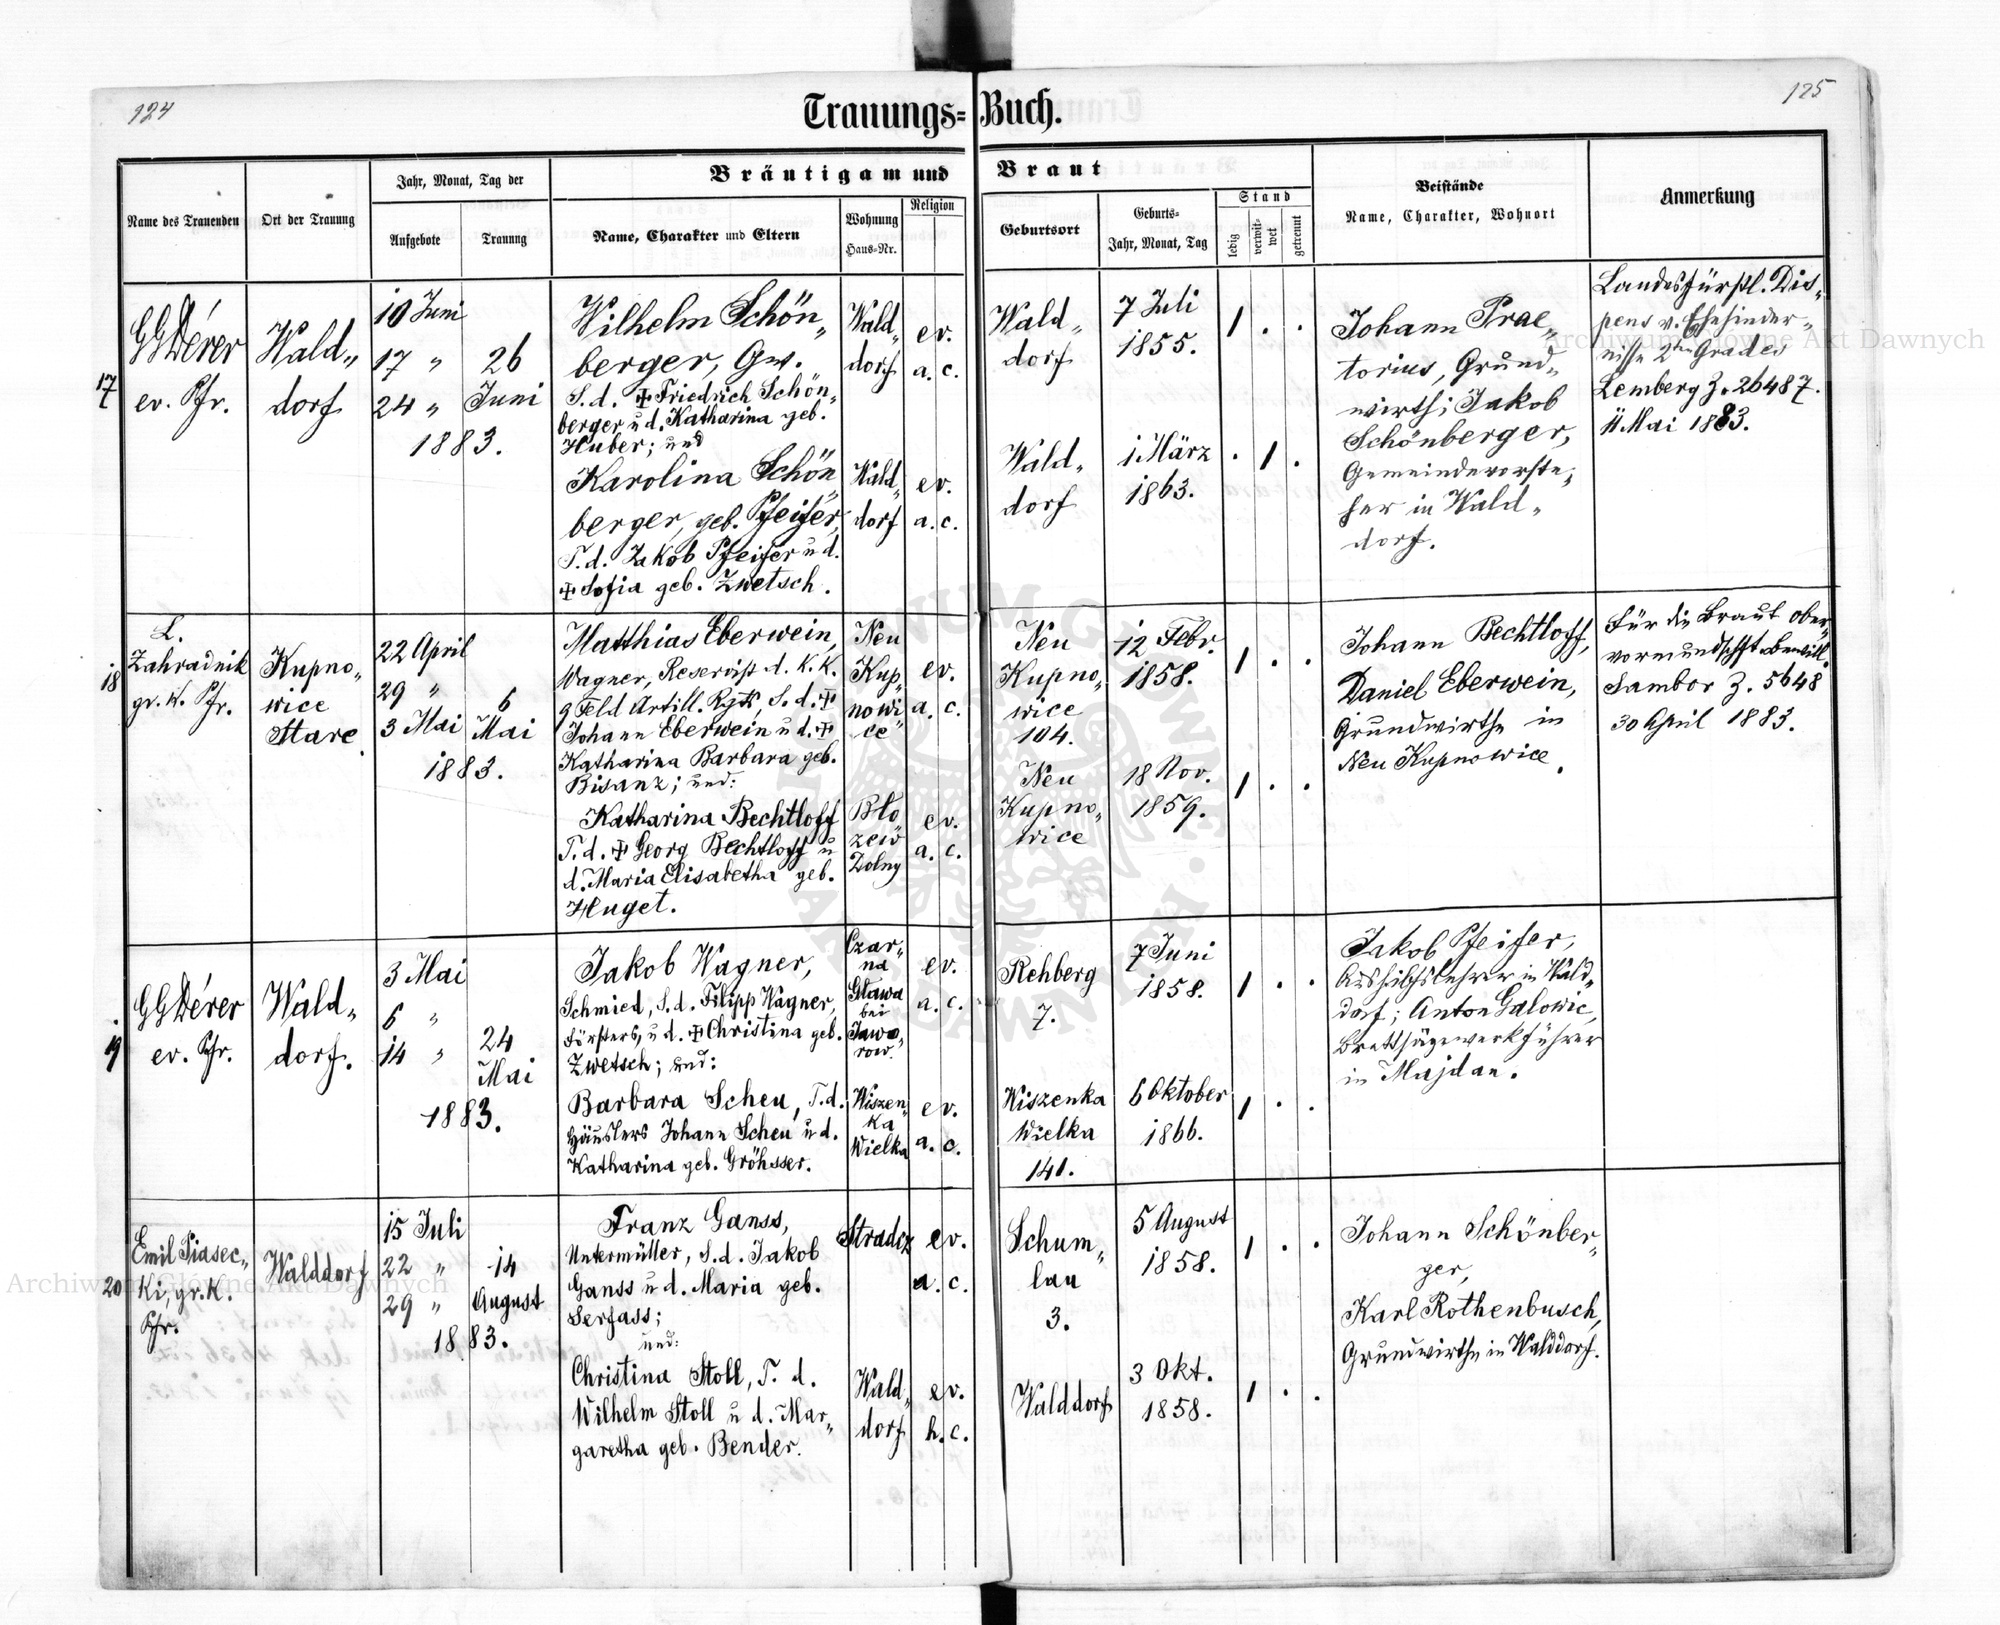 124
125
Trauungs-Buch.
Bräutigam und Braut
Name des Trauenden
Ort der Trauung
Jahr, Monat, Tag der
Aufgebote
Trauung
Name, Charakter und Eltern
Wohnung
Haus-Nr.
Religion
Geburtsort
Geburts-
Jahr, Monat, Tag
Stand
ledig
verwit-
wet
getrennt
Beistände
Name, Charakter, Wohnort
Anmerkung
17
GGDérer
ev. Pfr.
Wald„
dorf
10 Juni
17 „ 26
24 „ Juni
1883.
Wilhelm Schön„
berger, Gw.
S. d. ☩ Friedrich Schön„
berger u d. Katharina geb.
Huber; und
Karolina Schön
berger, geb. Pfeifer,
T. d. Jakob Pfeifer u d.
☩ Sofia geb. Zwetsch.
Wald„
dorf
ev.
a. c.
Wald„
dorf
ev.
a. c.
Wald„
dorf
7 Juli
1855.
1 . .
Wald„
dorf
1 März
1863.
. 1 .
Johann Prae„
torius, Grund„
wirth; Jakob
Schönberger,
Gemeindevorste„
her in Wald„
dorf.
Landesfürstl. Dis„
pens v. Ehehinder„
nisse 2ten Grades
Lemberg Z. 26487.
11 Mai 1883.
18
L.
Zahradnik
gr. k. Pfr.
Kupno„
wice
Stare.
22 April
29 „ 6
3 Mai Mai
1883.
Matthias Eberwein,
Wagner, Reservist d. K. K.
9 Feld Artill. Rgts, S. d. ☩
Johann Eberwein u d. ☩
Katharina Barbara geb.
Bisanz; und:
Katharina Bechtloff
T. d. ☩ Georg Bechtloff u
d. Maria Elisabetha geb.
Huget.
Neu
Kup„
nowi„
ce
ev.
a. c.
Bło„
zew
Dolny
ev.
a. c.
Neu
Kupno„
wice
104.
12 Febr.
1858.
1 . .
Neu
Kupno„
wice
18 Nov.
1859.
1 . .
Johann Bechtloff,
Daniel Eberwein,
Grundwirthe in
Neu Kupnowice.
Für die Braut ober„
vormundschft. bewill.
Sambor Z. 5648
30 April 1883.
19
GGDérer
ev. Pfr.
Wald„
dorf.
3 Mai
6 „
14 „ 24
Mai
1883.
Jakob Wagner,
Schmied, S. d. Filipp Wagner,
Försters, u d. ☩ Christina geb.
Zwetsch; und:
Barbara Scheu, T. d.
Häuslers Johann Scheu u d.
Katharina geb. Gröhsser.
Czar„
na
Glawa
bei
Jawo„
row.
ev.
a. c.
Wiszen„
ka
Wielka
ev.
a. c.
Rehberg
7.
7 Juni
1858.
1 . .
Wiszenka
Wielka
141.
6 Oktober
1866.
1 . .
Jakob Pfeifer,
Aushilfslehrer in Wald„
dorf; Anton Galowic,
Brettsägewerkführer
in Majdan.
20
Emil Piasec„
ki, gr. k.
Pfr.
Walddorf
15 Juli
22 „ 14
29 „ August
1883.
Franz Ganss,
Untermüller, S. d. Jakob
Ganss u d. Maria geb.
Serfass;
und:
Christina Stoll, T. d.
Wilhelm Stoll u d. Mar„
garetha geb. Bender.
Stradcz
ev.
a. c.
Wald„
dorf
ev.
h. c.
Schum„
lau
3.
5 August
1858.
1 . .
Walddorf
3 Okt.
1858.
1 . .
Johann Schönber„
ger,
Karl Rothenbusch,
Grundwirthe in Walddorf.
Archiwum Główne Akt Dawnych
Archiwum Główne Akt Dawnych
ARCHIWUM GŁÓWNE AKT DAWNYCH